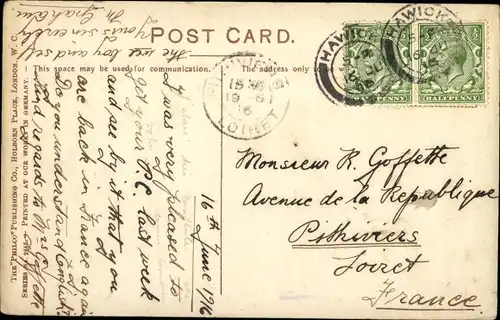 POST CARD.
This space may be used for communication.
The address only to be
THE "PHILCO" PUBLISHING CO., HOLBORN PLACE, LONDON, W.C.
PRINTED AT OUR WORKS IN GERMANY.
16th June 1916
I was very pleased to
get your P.C last week
and see by it that you
are back in France again
Do you understand English?
Kind regards to Mrs Goffette
the wee boy and self
Yours sincerely
M. Graham
HAWICK
HAWICK
HALFPENNY
HALFPENNY
PITHIVIERS
LOIRET
Monsieur R. Goffette
Avenue de la Republique
Pithiviers
Loiret
France